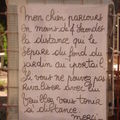 mon chien parcours
en moins de 4 secondes
la distance qui le
sépare du fond du
jardin au portail
Si vous ne pouvez pas
rivaliser avec lui
veuillez vous tenir
à distance
merci